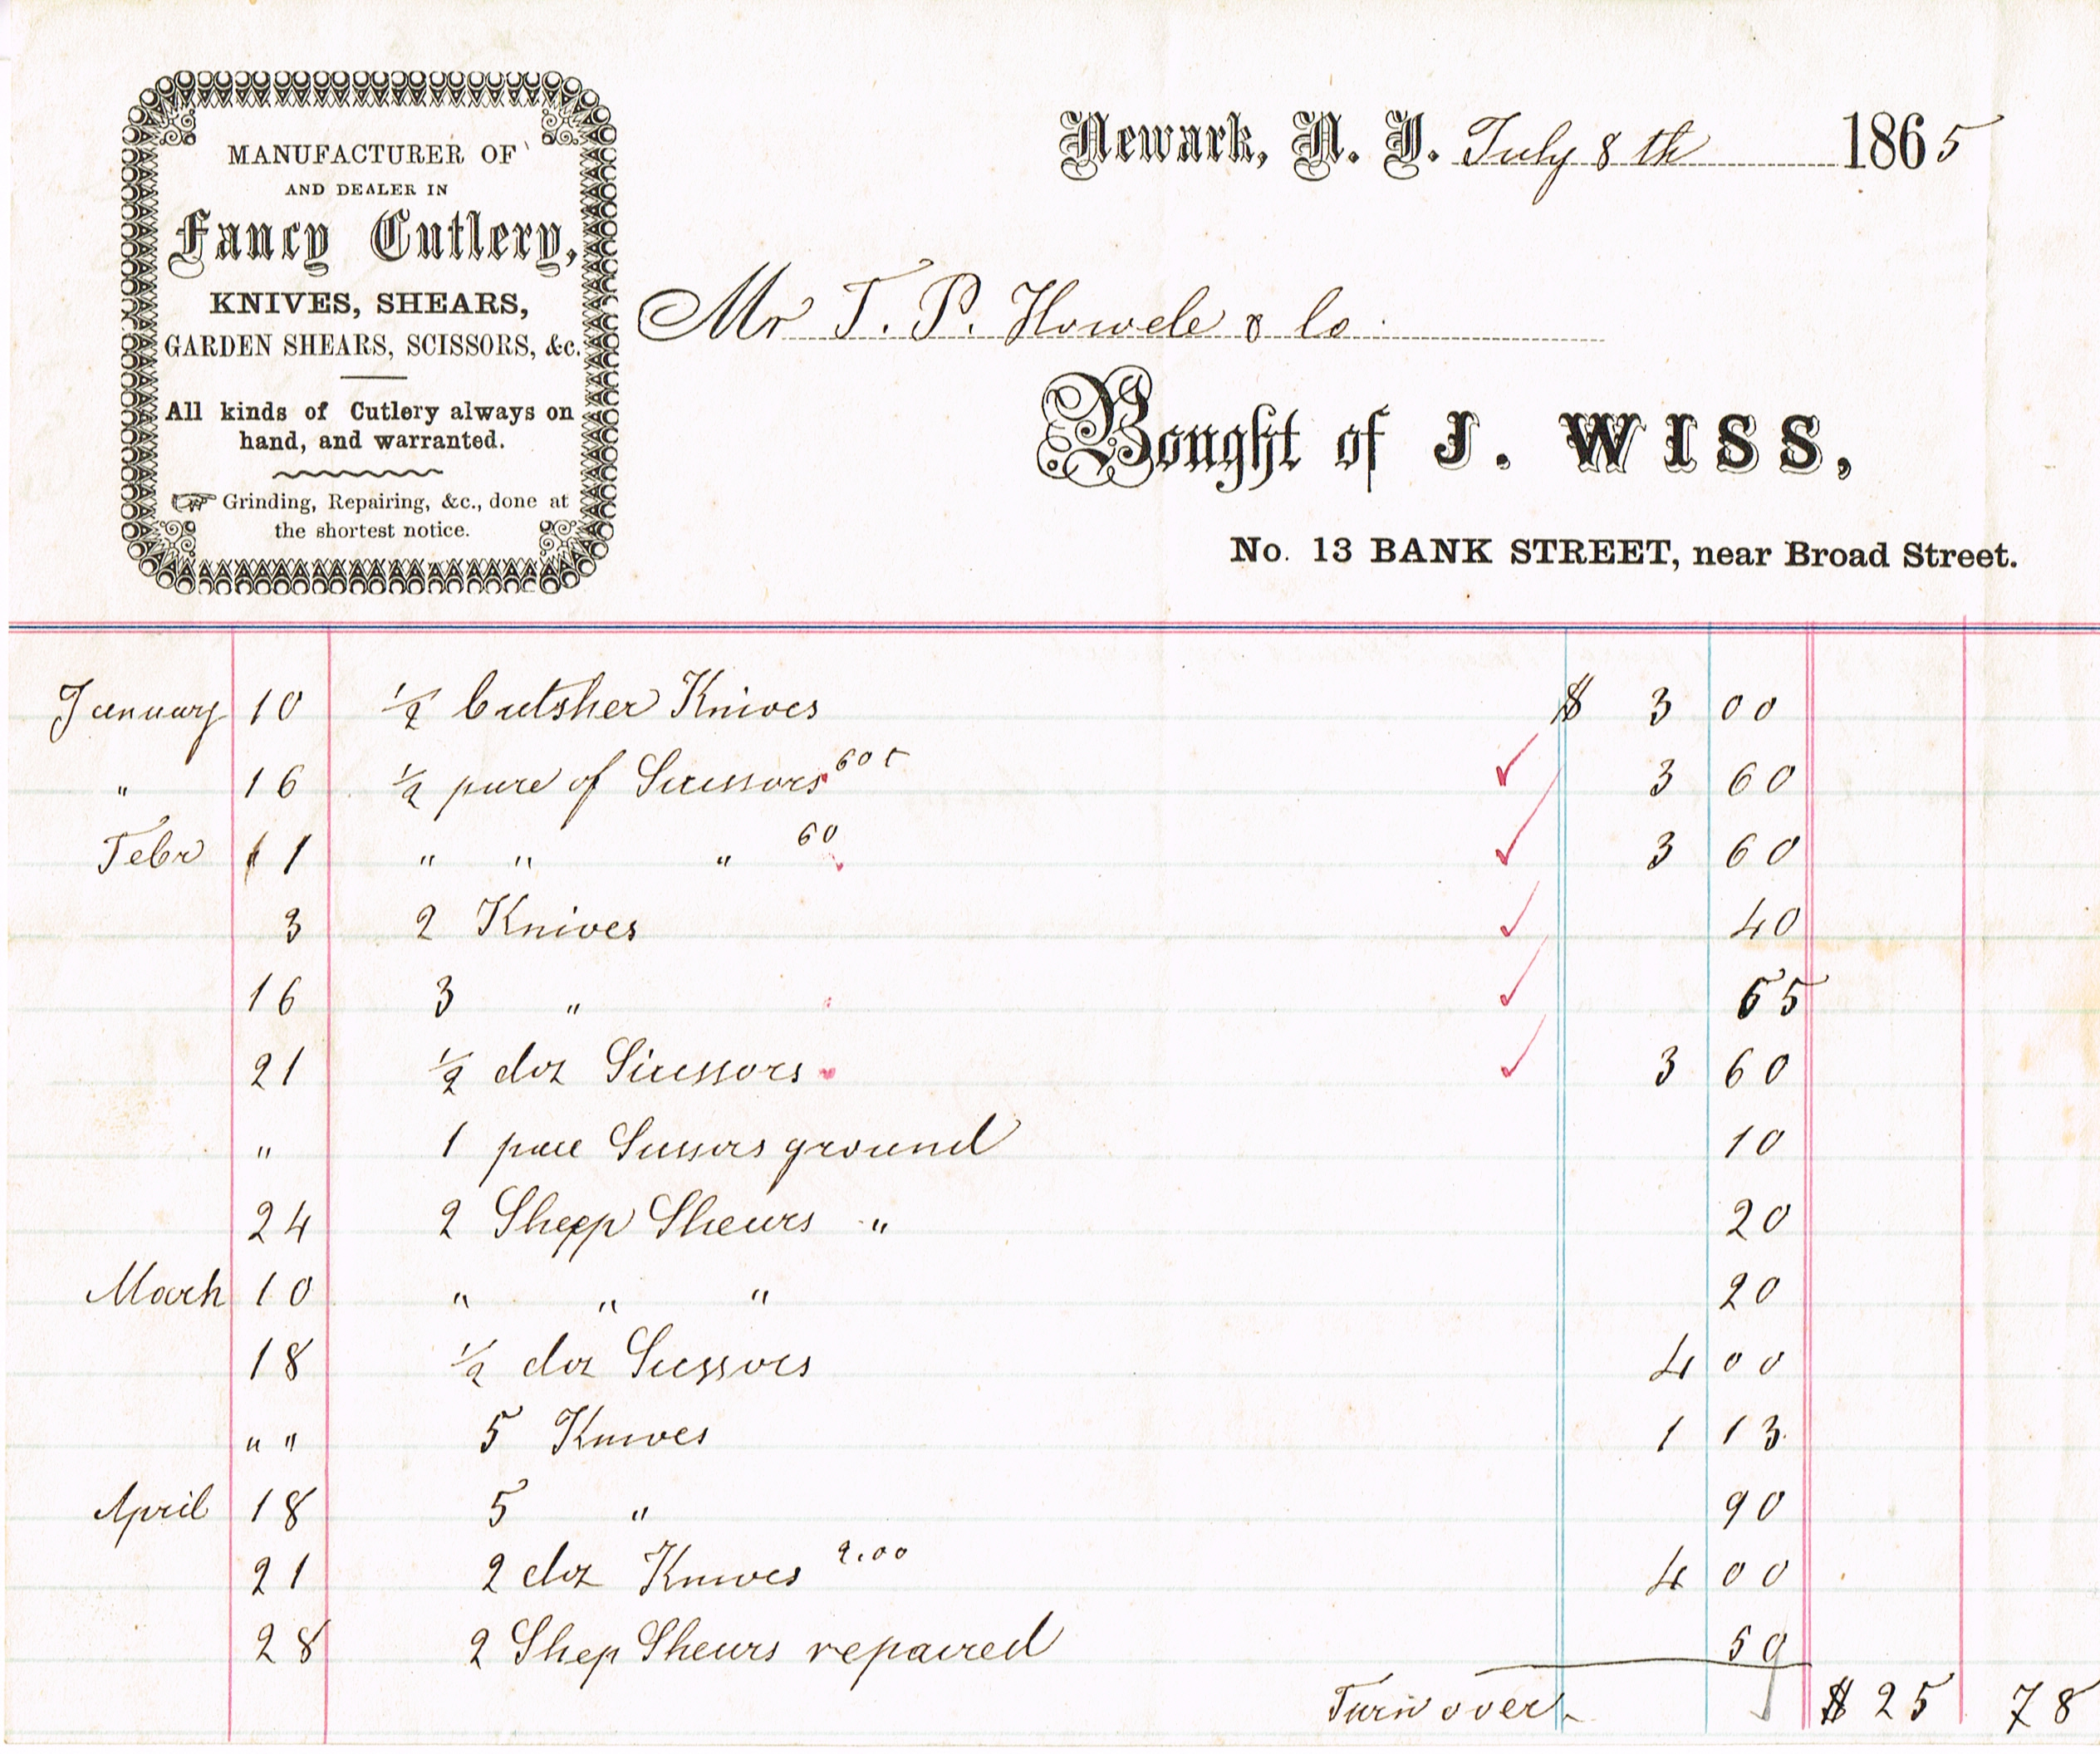 MANUFACTURER OF
AND DEALER IN
Fancy Cutlery,
KNIVES, SHEARS,
GARDEN SHEARS, SCISSORS, &c.
All kinds of Cutlery always on
hand, and warranted.
Grinding, Repairing, &c., done at
the shortest notice.
Newark, N. J. July 8th 1865
Mr T. P. Howele & Co.
Bought of J. WISS,
No. 13 BANK STREET, near Broad Street.
January 10 1/2 butsher Knives $ 3 00
" 16 1/2 pare of Scissors 60 c 3 60
Febr 1 " " " 60 3 60
3 2 Knives 40
16 3 " 55
21 1/2 doz Scissors 3 60
" 1 pare Scissors ground 10
24 2 Sheep Shears " 20
March 10 " " " 20
18 1/2 doz Scissors 4 00
" " 5 Knives 1 13
April 18 5 " 90
21 2 doz Knives 2.00 4 00
28 2 Shep Shears repaired 50
Turn over $ 25 78